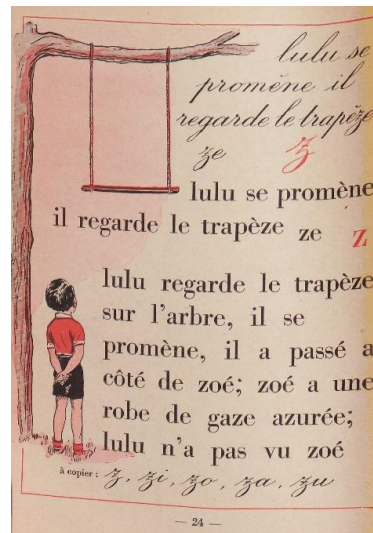 lulu se
promène il
regarde le trapèze
ze z
lulu se promène
il regarde le trapèze ze z
lulu regarde le trapèze
sur l'arbre, il se
promène, il a passé a
côté de zoé; zoé a une
robe de gaze azurée;
lulu n'a pas vu zoé
à copier : z, zi, zo, za, zu
— 24 —